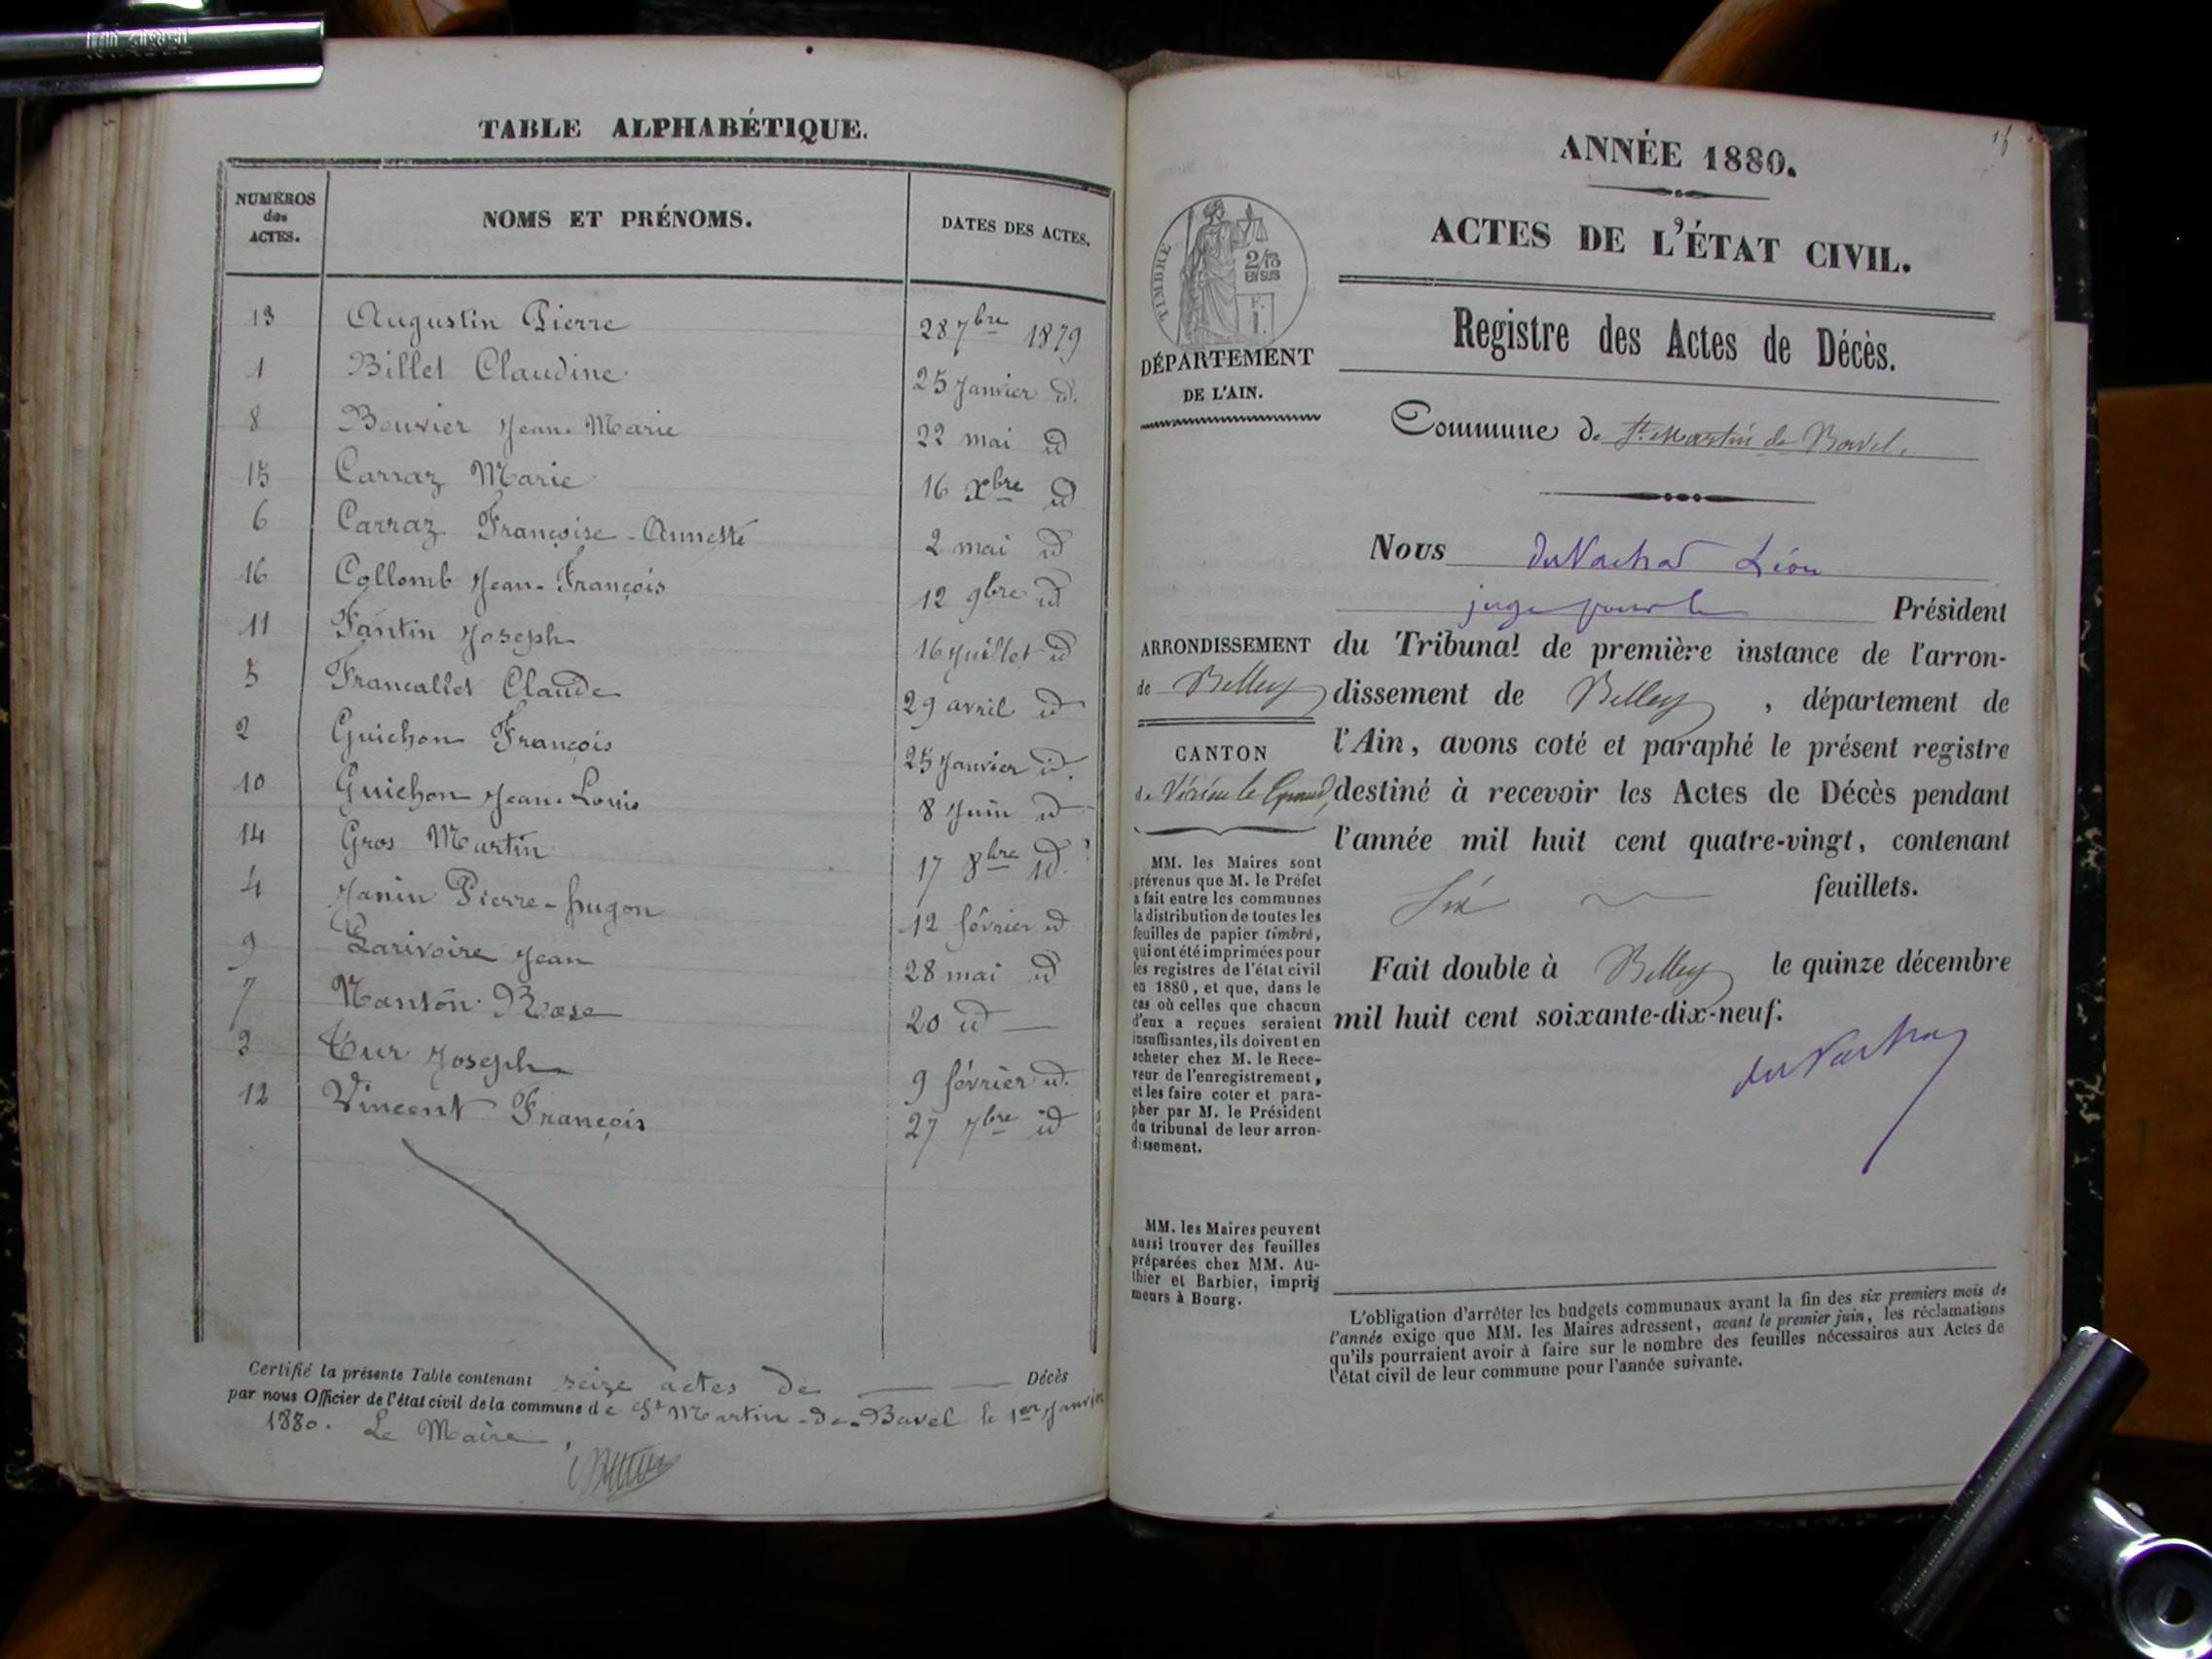 TABLE ALPHABÉTIQUE.
NUMÉROS
des
ACTES.
NOMS ET PRÉNOMS.
DATES DES ACTES.
13 Augustin Pierre 28 7bre 1879
1 Billet Claudine 25 Janvier id.
8 Bouvier Jean-Marie 22 mai id
15 Carraz Marie 16 Xbre id
6 Carraz Françoise-Annette 2 mai id
16 Collomb Jean-François 12 9bre id
11 Fantin Joseph 16 Juillet id
5 Francallet Claude 29 avril id
2 Guichon François 25 Janvier id.
10 Guichon Jean-Louis 8 Juin id
14 Gros Martin 17 8bre id.
4 Janin Pierre-hugon 12 février id
9 Larivoire Jean 28 mai id
7 Nanton Rose 20 id —
3 Tur Joseph 9 février id.
12 Vincent François 27 7bre id
Certifié la présente Table contenant seize actes de — — Décès
par nous Officier de l'état civil de la commune de St Martin-de-Bavel le 1er Janvier
1880. Le Maire,
ANNÉE 1880.
ACTES DE L'ÉTAT CIVIL.
TIMBRE
2/10
EN SUS
DÉPARTEMENT
DE L'AIN.
Registre des Actes de Décès.
Commune de St. Martin de Bavel.
Nous Léon
juge pour le Président
ARRONDISSEMENT
de Belley
CANTON
de Virieu le Grand,
du Tribunal de première instance de l'arron-
dissement de Belley, département de
l'Ain, avons coté et paraphé le présent registre
destiné à recevoir les Actes de Décès pendant
l'année mil huit cent quatre-vingt, contenant
Six feuillets.
Fait double à Belley le quinze décembre
mil huit cent soixante-dix-neuf.
MM. les Maires sont
prévenus que M. le Préfet
a fait entre les communes
la distribution de toutes les
feuilles de papier timbré,
qui ont été imprimées pour
les registres de l'état civil
en 1880, et que, dans le
cas où celles que chacun
d'eux a reçues seraient
insuffisantes, ils doivent en
acheter chez M. le Rece-
veur de l'enregistrement,
et les faire coter et para-
pher par M. le Président
du tribunal de leur arron-
dissement.
MM. les Maires peuvent
aussi trouver des feuilles
préparées chez MM. Au-
thier et Barbier, impri-
meurs à Bourg.
L'obligation d'arrêter les budgets communaux avant la fin des six premiers mois de
l'année exige que MM. les Maires adressent, avant le premier juin, les réclamations
qu'ils pourraient avoir à faire sur le nombre des feuilles nécessaires aux Actes de
l'état civil de leur commune pour l'année suivante.